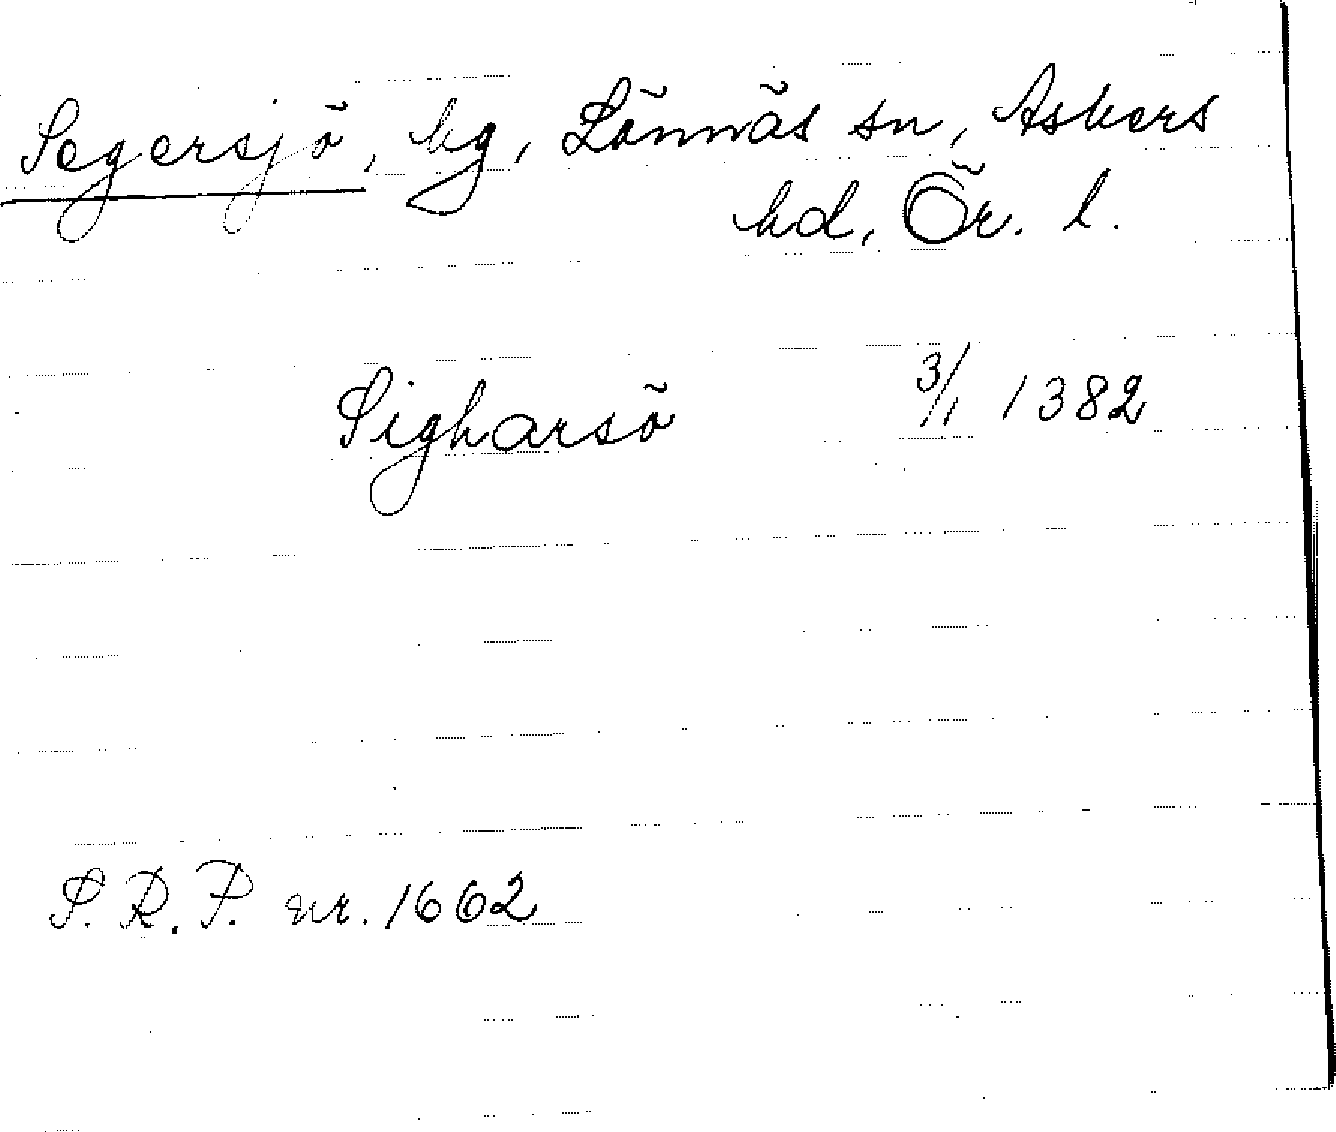 Segersjö, hg, Lännäs sn, Askers
hd, Ör. l.
Sigharsö 3/1 1382
S. R. P. nr. 1662